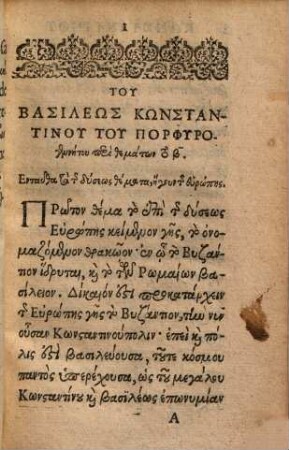 1
ΤΟΥ
ΒΑΣΙΛΕΩΣ ΚΩΝΣΤΑΝ-
ΤΙΝΟΥ ΤΟΥ ΠΟΡΦΥΡΟ-
γεννήτου περὶ θεμάτων
Ενταῦθα τὰ τῆς δύσεως θέματα, ἤγουν τῆς εὐρώπης.
ΠΡῶτον θέμα τὸ ἐπὶ τῆς δύσεως
Εὐρώπης κείμενον γῆς, τὸ ὀνο-
μαζόμενον θρακῶον· ἐν ᾧ τὸ Βυζά-
ντιον ἵδρυται, καὶ τὸ τῶν Ρωμαίων βα-
σίλειον. Δίκαιον ἐστὶ προκατάρχειν
τῆς Εὐρώπης γῆς τὸ Βυζάντιον, τὴν νῦν
οὖσαν Κωνσταντινούπολιν· ἐπεὶ καὶ πό-
λις ἐστὶ βασιλεύουσα, τοῦτε κόσμου
παντὸς ὑπερέχουσα, ὡς τοῦ μεγάλου
Κωνσταντίνου καὶ βασιλέως ἐπωνυμίαν
A